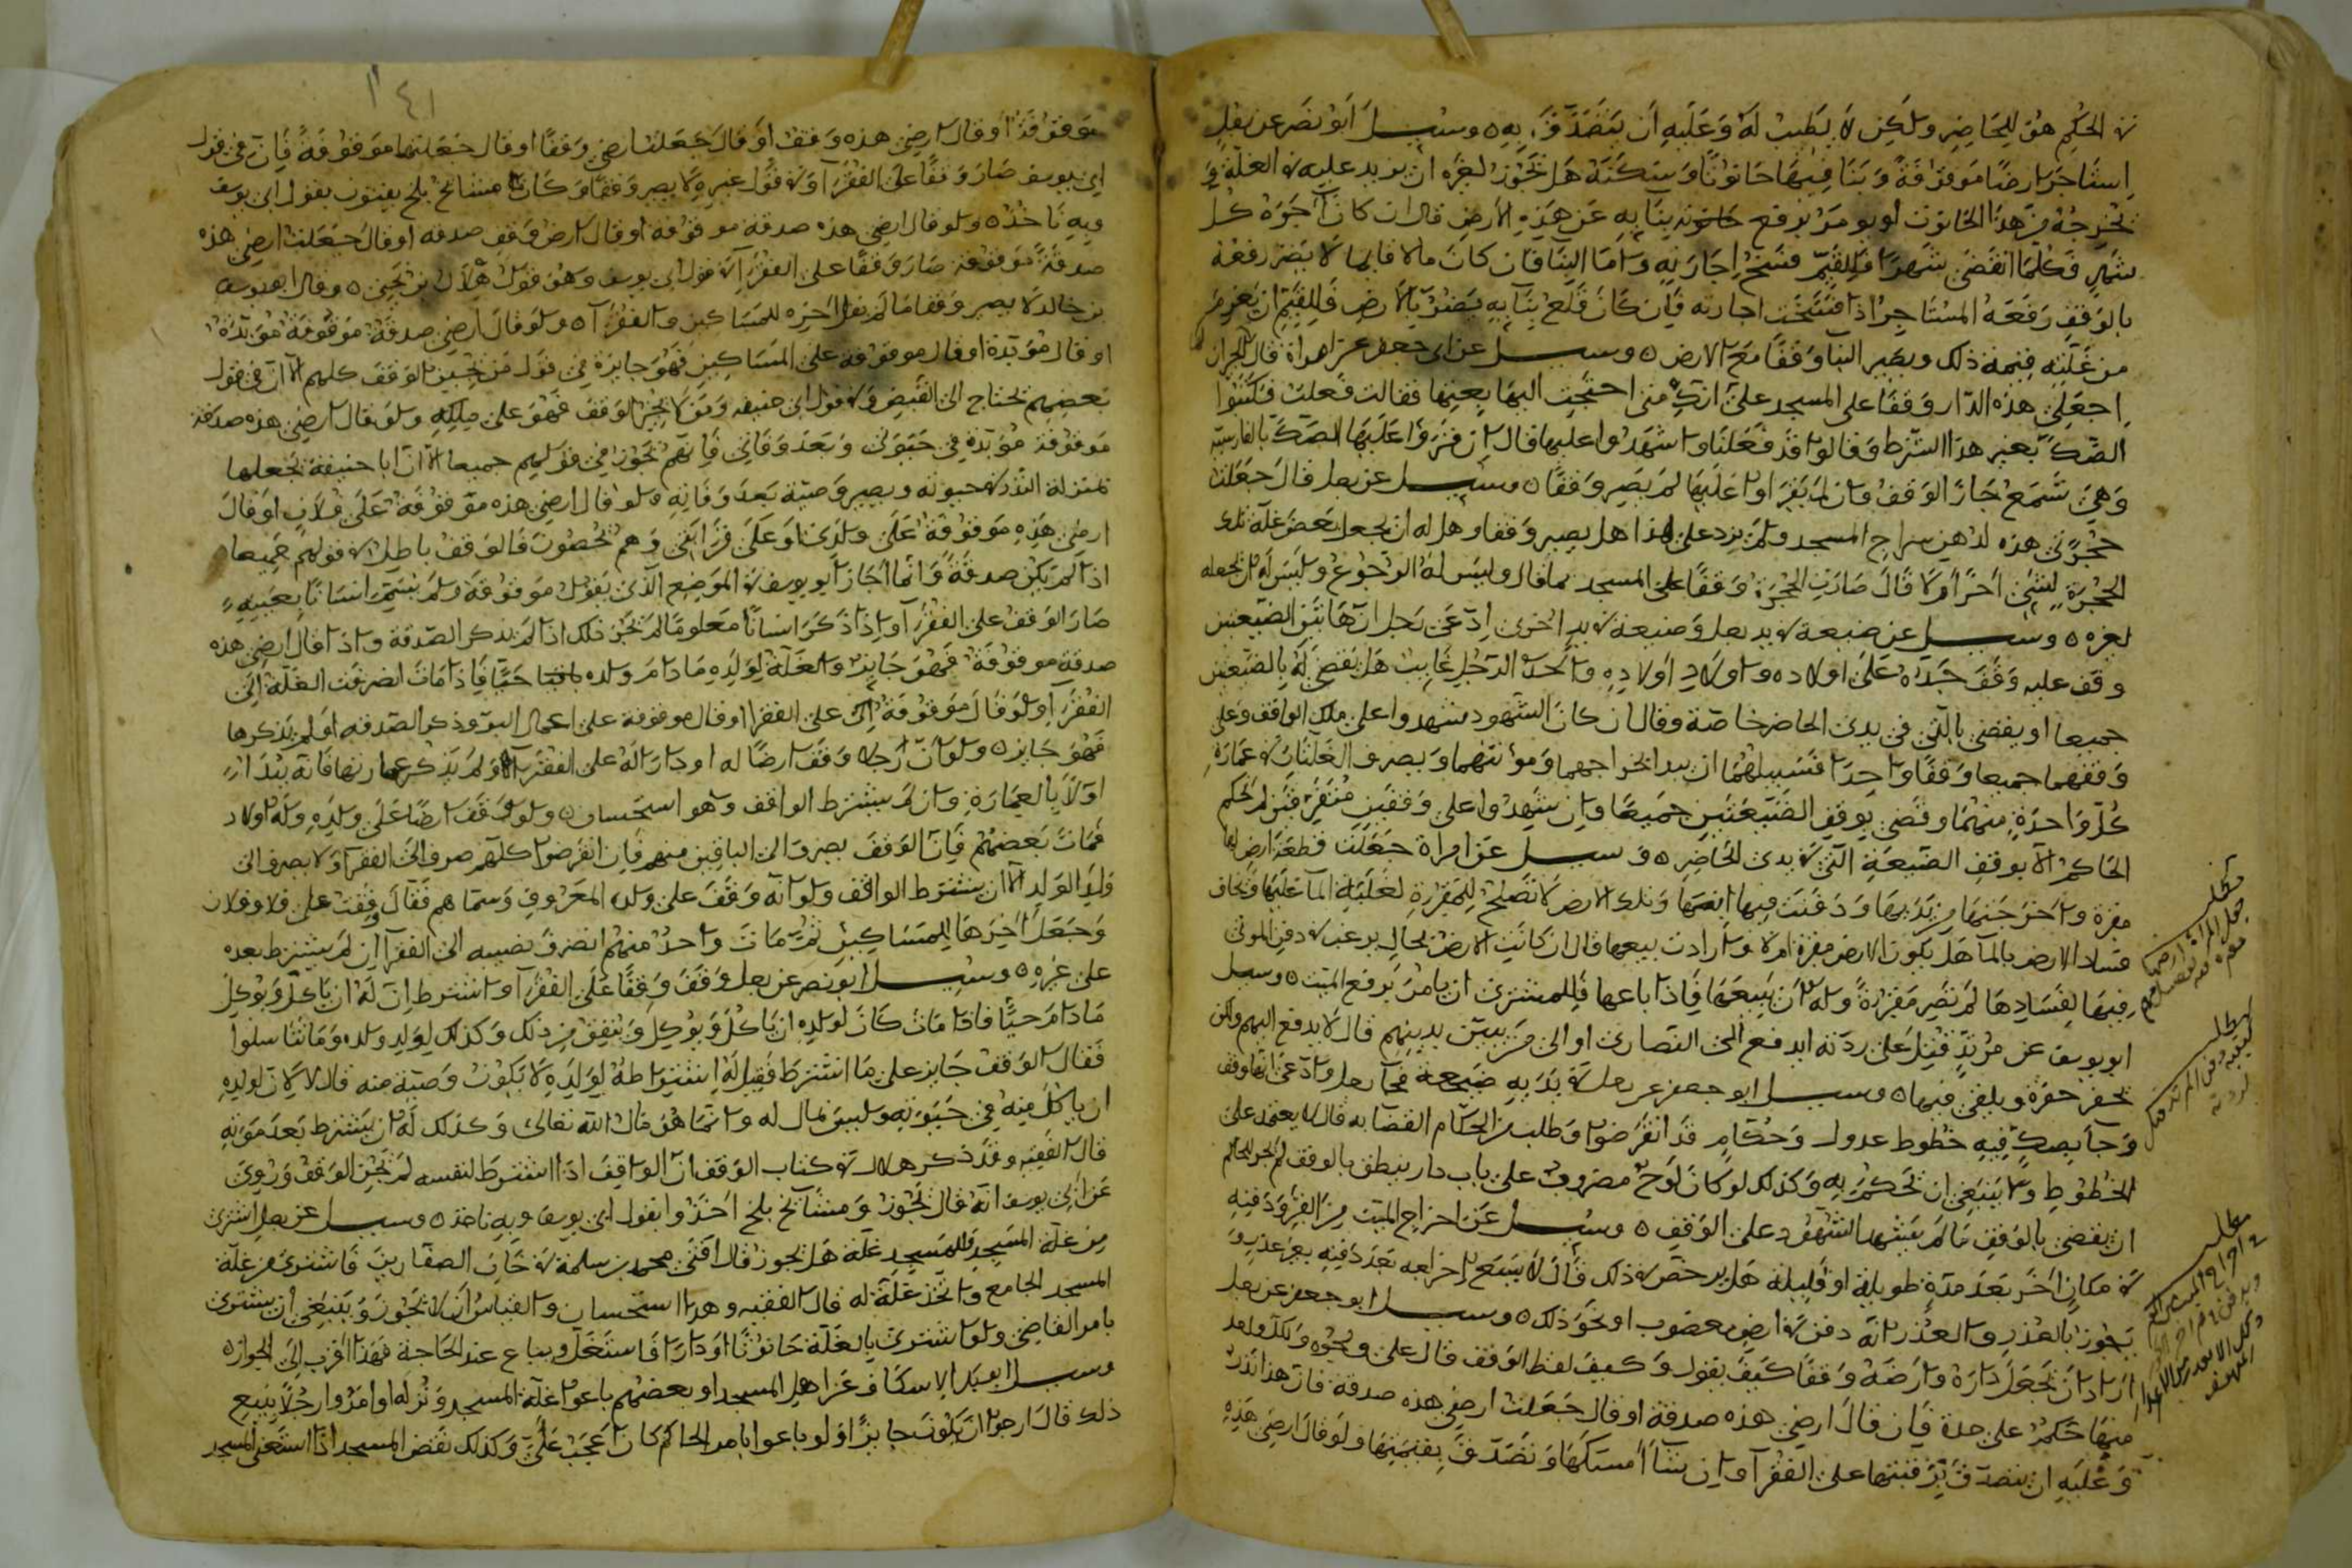 في الحكم هو للحاضر ولكن لا يطيب له وعليه ان يتصدق به ه وسئل ابو نصر عن رجل
استأجر ارضا موقوفة وبنا فيها حانوتا وسكنه هل يجوز لغيره ان يزيد عليه في الغلة و
يخرجه من هذا الحانوت او يومر برفع بنايه عن هذه الارض قال ان كان آجره كل
شهر فكلما انقضى شهر فللقيم فسخ اجارته واما البنا فان كان مالا قايما لا يضر رفعه
بالوقف رفعه المستاجر اذا فسخت اجارته فان كان قلع بنآيه يضر بالارض فللقيم ان يغرم
من غلته قيمة ذلك ويصير البنا وقفا مع الارض ه وسئل عن ابي جعفر عن امراة قال الجيران لها
اجعلي هذه الدار وقفا على المسجد على انك متى احتجت اليها بعتها فقالت فعلت فكتبوا
الصك بغير هذا الشرط وقالوا قد فعلنا واشهدوا عليها قال ان قرؤا عليها الصك بالفارسية
وهي تسمع جاز الوقف وان لم يقراوا عليها لم يصر وقفا ه وسئل عن رجل قال جعلت
حجرتي هذه لدهن سراج المسجد ولم يزد على هذا هل يصير وقفا وهل له ان يجعل بعض غلة تلك
الحجرة لشئ آخر ام لا قال صارت الحجرة وقفا على المسجد بما قال وليس له الرجوع وليس له ان يجعله
لغيره ه وسئل عن ضيعة في يد رجل وضيعة في يد اخرى ادعى رجل انها بين الضيعتين
وقف عليه وقف جده على اولاده واولاد اولاده واحد الرجلين غايب هل يقضى له بالضيعتين
جميعا او يقضى بالتي في يدي الحاضر خاصة وقال ان كان الشهود شهدوا على ملك الواقف وعلى
وقفهما جميعا وقفا واحدا فسبيلهما ان يبدا بخراجهما ومؤنتهما ويصرف الغلتان في عمارة
كل واحدة منهما وقضى بوقف الضيعتين جميعا وان شهدوا على وقفين متفرقين لم يحكم
الحاكم الا بوقف الضيعة التي في يدي الحاضر ه وسئل عن امراة جعلت قطعة ارض لها
مقبرة واخرجتها من يدها ودفنت فيها ابنها وتلك الارض لا تصلح للمقبرة لغلبة المآ عليها وتخاف
فساد الارض بالمآ هل يكون الارض مقبرة ام لا وارادت بيعها قال ان كانت الارض بحال يرغب في دفن الموتى
فيها لفسادها لم تصر مقبرة ولها ان يبيعها فاذا باعها فللمشتري ان يامر برفع الميت ه وسئل
ابو يوسف عن مرتد قتل على ردته ايدفع الى النصارى او الى من يتبين بدينهم قال لا يدفع اليهم ولكن
تحفر حفرة ويلقى فيها ه وسئل ابو جعفر عن رجل في يديه ضيعة فجآ رجل وادعى انها وقف
وجآ بصك فيه خطوط عدول وحكام قد انقرضوا وطلب من الحكام القضا به قال لا يعتمد على
الخطوط ولا ينبغي ان تحكم به وكذلك لو كان لوح مضروب على باب دار ينطق بالوقف لم يجز للحاكم
ان يقضى بالوقف ما لم يشهد الشهود على الوقف ه وسئل عن اخراج الميت من القبر ودفنه
في مكان آخر بعد مدة طويلة او قليلة هل يرخص في ذلك قال لا يتبع اخراجه بعد دفنه بغير عذر و
يجوز بالعذر والعذر انه دفن في ارض مغصوب او نحو ذلك ه وسئل ابو جعفر عن رجل
اراد ان يجعل داره وارضه وقفا كيف يقول وكيف لفظ الوقف قال على وجوه ولكل واحد
منها حكم على حدة فان قال ارضي هذه صدقة او قال جعلت ارضي هذه صدقة فان هذا نذر
وعليه ان يتصدق برقبتها على الفقرآ وان شآ امسكها وتصدق بقيمتها ولو قال ارضي هذه
مطلب
جعل المراة ارضها
مطلب
كيفية دفن المرتد
مطلب
في اخراج الميت من القبر
١٤١
موقوفة او قال ارضي هذه وقف او قال جعلت ارضي وقفا او قال جعلتها موقوفة فان في قول
ابي يوسف صار وقفا على الفقرآ وفي قول غيره لا يصير وقفا وكان مشائخ بلخ يفتون بقول ابي يوسف
وبه ناخذ ه ولو قال ارضي هذه صدقة موقوفة او قال ارض وقف صدقه او قال جعلت ارضي هذه
صدقة موقوفة صار وقفا على الفقرآ في قول ابي يوسف وهو قول هلال بن يحيى ه وقال يوسف
بن خالد لا يصير وقفا ما لم يقل آخره للمساكين والفقرآ ه ولو قال ارضي صدقة موقوفة مؤبدة
او قال مؤبدة او قال موقوفة على المساكين فهو جايزة في قول من يجيز الوقف كلهم الا ان في قول
بعضهم يحتاج الى القبض وفي قول ابي حنيفه ومن لا يجيز الوقف فهو على ملكه ولو قال ارضي هذه صدقة
موقوفة مؤبدة في حيوتي وبعد وفاتي فانهم يجوز في قولهم جميعا الا ان ابا حنيفة يجعلها
بمنزلة النذر في حيوته ويصير وصية بعد وفاته ولو قال ارضي هذه موقوفة على فلان او قال
ارضي هذه موقوفة على ولدي او على قرابتي وهم يحصون فالوقف باطل في قولهم جميعا
اذا لم يكن صدقة وانما اجاز ابو يوسف في الموضع الذي يقول موقوفة ولم يسم انسانا بعينه
صار الوقف على الفقرآ واذا ذكر انسانا معلوما لم يجز ذلك اذا لم يذكر الصدقة واذا قال ارضي هذه
صدقة موقوفة فهو جايز والغلة لولده ما دام ولده حيا فاذا مات انصرفت الغلة الى
الفقرآ ولو قال موقوفة اي على الفقرا او قال موقوفة على اعمال البر وذكر الصدقه او لم يذكرها
فهو جايزه ولو ان رجلا وقف ارضا له او دارا له على الفقرآ ولم يذكر عمارتها فانه يبدأ
اولا بالعمارة وان لم يشترط الواقف وهو استحسان ه ولو وقف ارضا على ولده وله اولاد
فمات بعضهم فان الوقف يصرف الى الباقين منهم فان انقرضوا كلهم صرف الى الفقرآ ولا يصرف الى
ولد الولد الا ان يشترط الواقف ولو انه وقف على ولده المعروف وسماهم فقال وقفت على فلان وفلان
وجعل آخرها للمساكين ثم مات واحد منهم انصرف نصيبه الى الفقرآ ان لم يشترط بعده
على غيره ه وسئل ابو نصر عن رجل وقف وقفا على الفقرآ واشترط ان له ان ياكل ويوكل
ما دام حيا فاذا مات كان لولده ان ياكل ويوكل وينفق من ذلك وكذلك لولد ولده وما تناسلوا
فقال الوقف جايز على ما اشترط فقيل له اشتراطه لولده لا يكون وصية منه قال لا لان لولده
ان ياكل منه في حيوته وليس بمال له وانما هو مال الله تعالى وكذلك له ان يشترط بعد موته
قال الفقيه وقد ذكر هلال في كتاب الوقف ان الواقف اذا اشترط لنفسه لم يجز الوقف وروي
عن ابي يوسف انه قال يجوز ومشآئخ بلخ اخذوا بقول ابي يوسف وبه ناخذ ه وسئل عن رجل اشترى
من غلة المسجد للمسجد غلة هل يجوز قال افتى محمد بن سلمة في خان الصفارين فاشترى من غلة
المسجد الجامع واتخذ غلة له قال الفقيه وهذا استحسان والقياس ان لا يجوز وينبغي ان يشتري
بامر القاضي ولو اشترى بالغلة حانوتا او دارا فاستغل ويباع عند الحاجة فهذا اقرب الى الجوازه
وسئل ابو بكر الاسكاف عن اهل المسجد او بعضهم باعوا غلة المسجد ونزله او امروا رجلا ببيع
ذلك قال ارجو ان يكون جايزا ولو باعوا بامر الحاكم كان اعجب على وكذلك نقض المسجد اذا استغنى المسجد